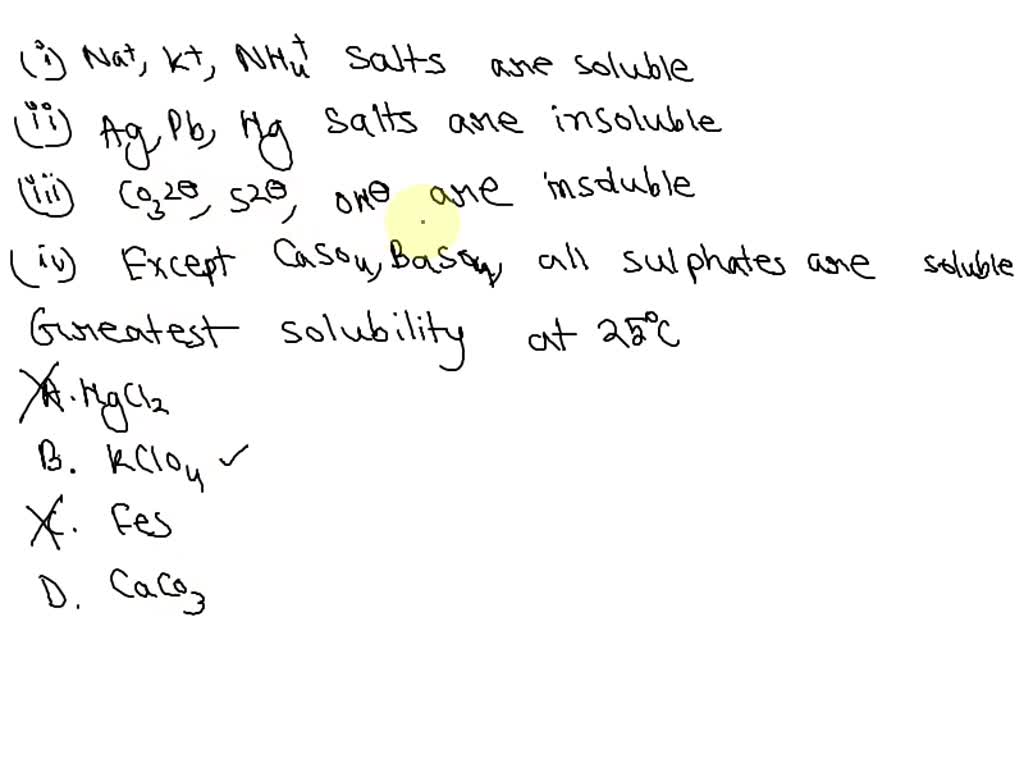 (i) Na⁺, K⁺, NH₄⁺ Salts are soluble
(ii) Ag, Pb, Hg Salts are insoluble
(iii) CO₃²⊖, S²⊖, OH⊖ are insoluble
(iv) Except CaSO₄, BaSO₄, all sulphates are soluble
Greatest solubility at 25°C
A. HgCl₂
B. KClO₄ ✓
C. FeS
D. CaCO₃